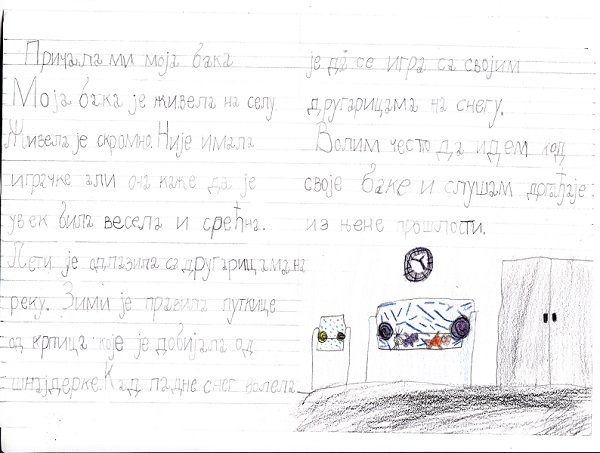 Причала ми моја бака
Моја бака је живела на селу.
Живела је скромно. Није имала
играчке али она каже да је
увек била весела и срећна.
Лети је одлазила са другарицама на
реку. Зими је правила луткице
од крпица које је добијала од
шнајдерке. Кад падне снег волела
је да се игра са својим
другарицама на снегу.
Волим често да идем код
своје баке и слушам догађаје
из њене прошлости.